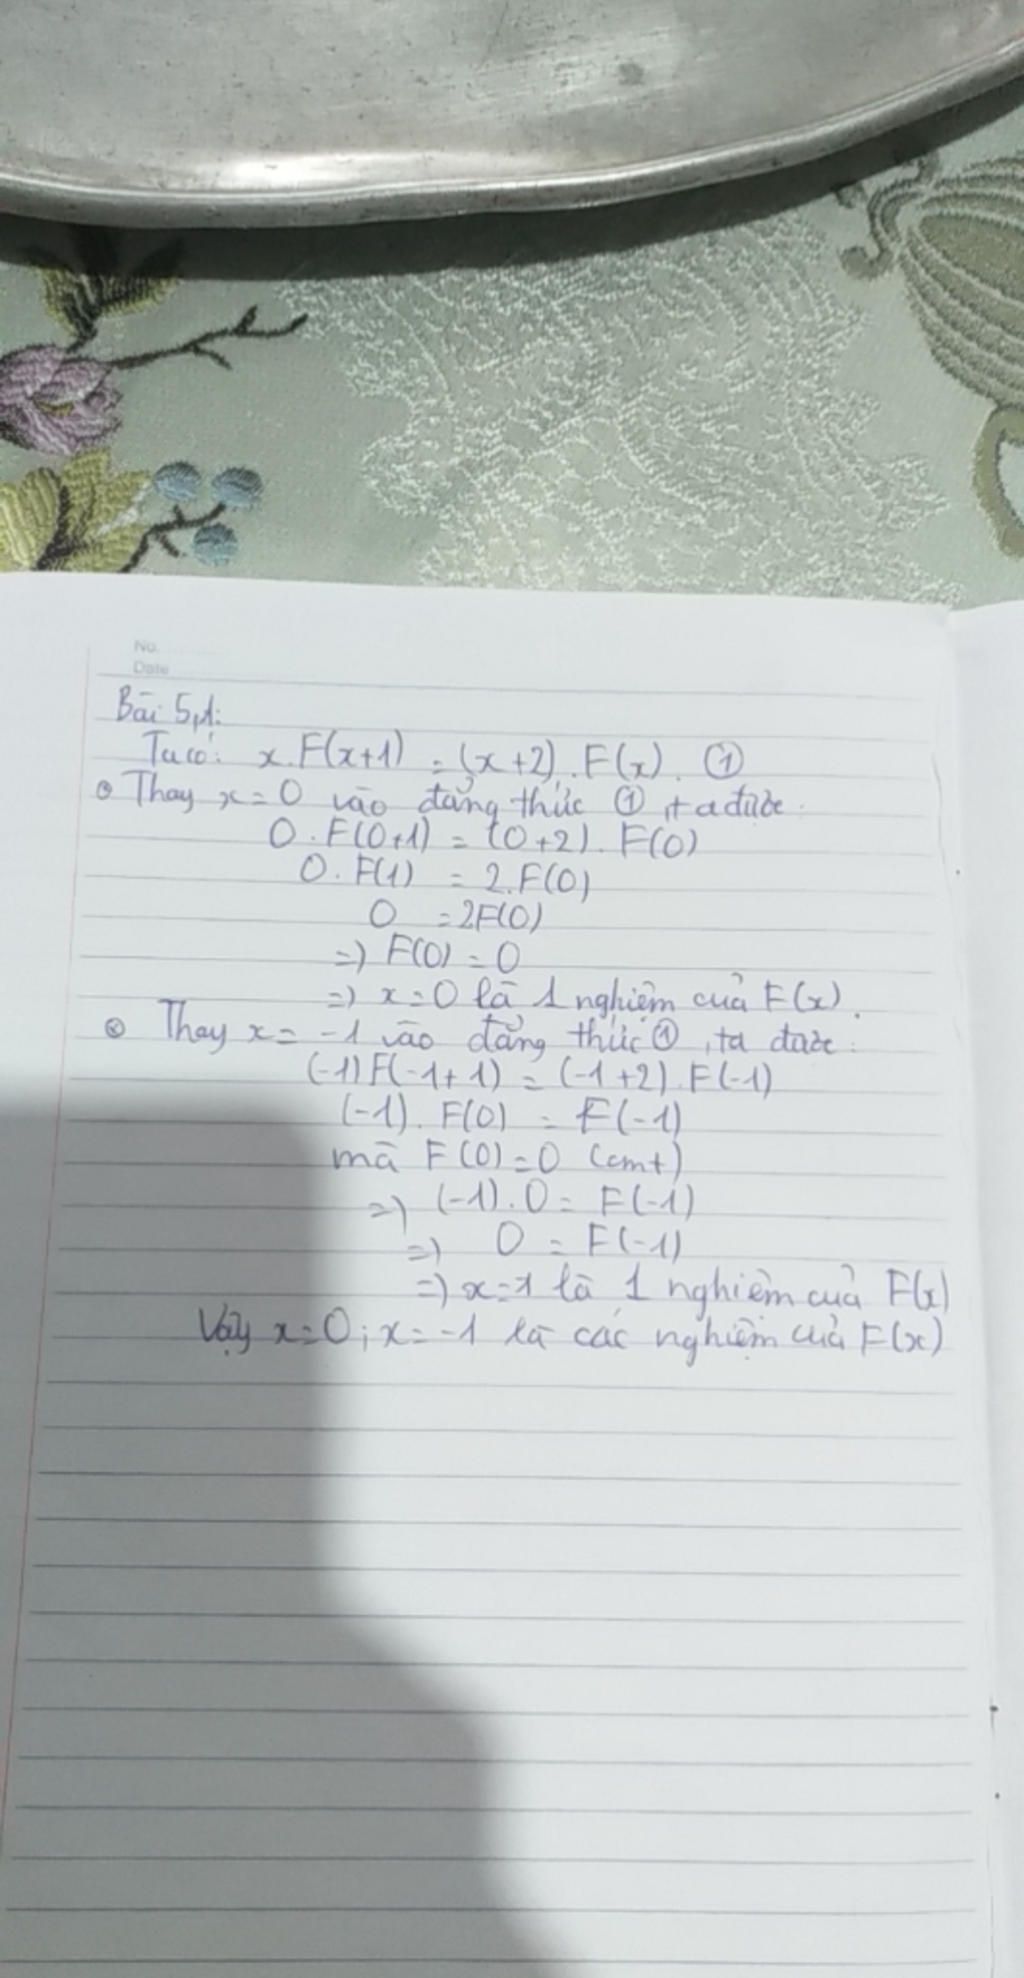 No.
Date
Bài 5,1:
Ta có: x.F(x+1) = (x+2).F(x). ①
Thay x=0 vào đẳng thức ①, ta được:
0.F(0+1) = (0+2).F(0)
0.F(1) = 2.F(0)
0 = 2F(0)
=) F(0) = 0
=) x=0 là 1 nghiệm của F(x).
Thay x= -1 vào đẳng thức ①, ta được:
(-1)F(-1+1) = (-1+2).F(-1)
(-1).F(0) = F(-1)
mà F(0)=0 (cmt)
=) (-1).0 = F(-1)
=) 0 = F(-1)
=) x=1 là 1 nghiệm của F(x)
Vậy x=0; x= -1 là các nghiệm của F(x)